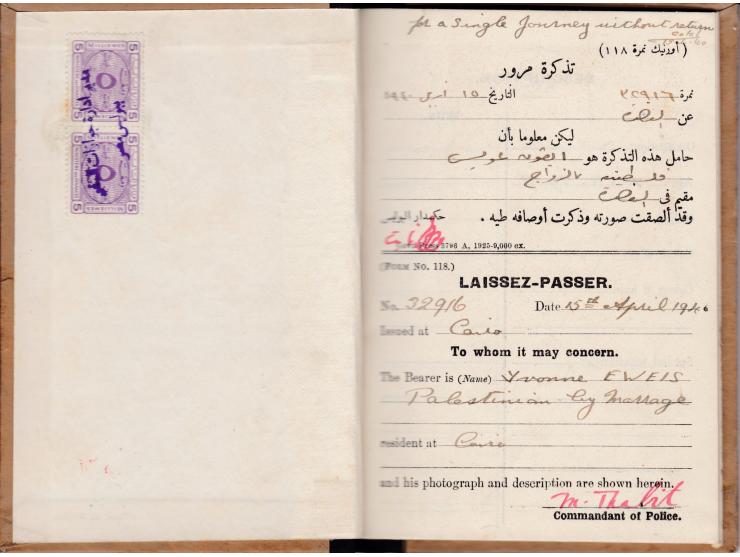 5 MILLIEMES 5
مدير إدارة جوازات السفر
بوليس مصر
5 MILLIEMES 5
for a single Journey without return
(أورنيك نمرة ١١٨)
تذكرة مرور
نمرة ٣٢٩١٦ التاريخ ١٥ ابريل ١٩٤٠
عن القاهرة
ليكن معلوما بأن
حامل هذه التذكرة هو ايفون عويس
فلسطينية بالزواج
مقيم فى القاهرة
وقد ألصقت صورته وذكرت أوصافه طيه . حكمدار البوليس
Press 3796 A, 1925-9,000 ex.
(FORM No. 118.)
LAISSEZ-PASSER.
No. 32916 Date 15th April 1940
Issued at Cairo
To whom it may concern.
The Bearer is (Name) Yvonne EWEIS
Palestinian by Marrage
resident at Cairo
and his photograph and description are shown herein.
M. Thabit
Commandant of Police.